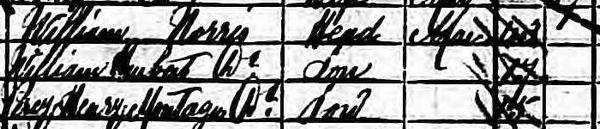 William Norris Head Mar
William Herbert Do Son
Percy Henry Montague Do Son